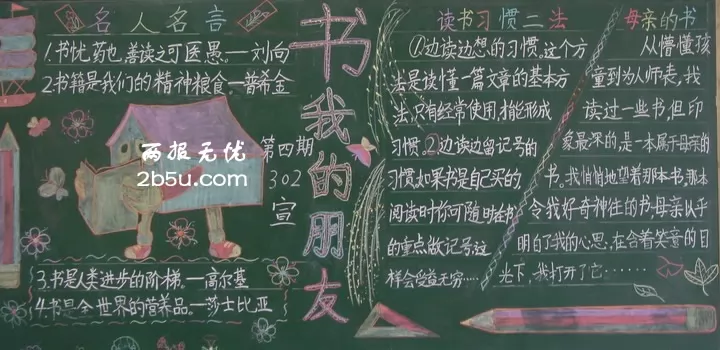 名人名言
1.书忧药也,善读之可医愚。—刘向
2.书籍是我们的精神粮食。—普希金
两报无优
2b5u.com
第四期
302
宣
3.书是人类进步的阶梯。—高尔基
4.书是全世界的营养品。—莎士比亚
书我的朋友
读书习惯二法
①边读边想的习惯。这个方
法是读懂一篇文章的基本方
法,只有经常使用,才能形成
习惯。②边读边留记号的
习惯,如果书是自己买的
阅读时你可随时在书
的重点做记号,这
样会受益无穷……
母亲的书
从懵懂孩
童到为人师走,我
读过一些书,但印
象最深的,是一本属于母亲的
书。我悄悄地望着那本书,那本
令我好奇神往的书,母亲似乎
明白了我的心思,在含着笑意的目
光下,我打开了它……